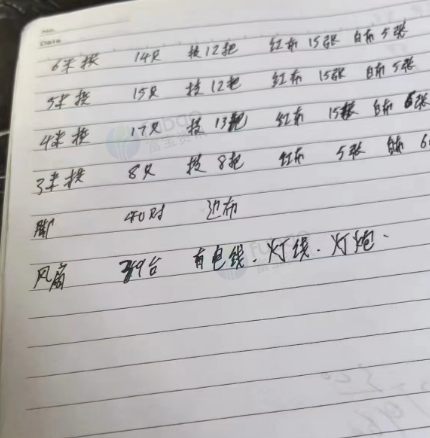 No.
Date
6米 14只 12把 红布 15张 白布 5张
5米 15只 12把 红布 15张 白布 5张
4米 17只 13把 红布 15张 白布 6张
3米 8只 8把 红布 5张 白布 6
脚 40对 边布
风扇 9台 有电线、灯线、灯炮.